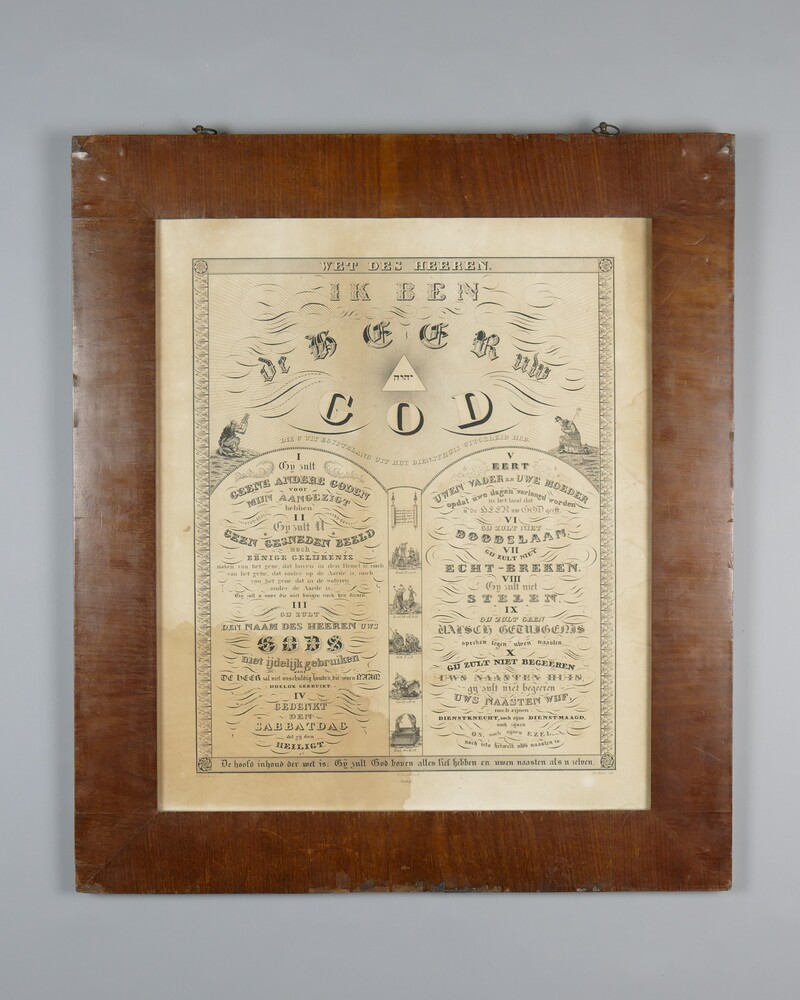 WET DES HEEREN.
IK BEN
de HEER uw
יהוה
GOD
DIE U UIT EGYPTELAND, UIT HET DIENSTHUIS UITGELEID HEB.
I
Gy zult
GEENE ANDERE GODEN
VOOR
MIJN AANGEZIGT
hebben
II
Gy zult U
GEEN GESNEDEN BEELD
noch
EENIGE GELIJKENIS
maken van het gene, dat boven in den Hemel is, noch
van het gene, dat onder op de Aarde is, noch
van het gene dat in de wateren
onder de Aarde is.
Gij zult u voor die niet buigen noch hen dienen.
III
GIJ ZULT
DEN NAAM DES HEEREN UWS
GODS
niet ijdelijk gebruiken
DE HEER zal niet onschuldig houden, die zynen NAAM
IJDELIJK GEBRUIKT
IV
GEDENKT
DEN
SABBATDAG
dat gij dien
HEILIGT
V
EERT
UWEN VADER EN UWE MOEDER
opdat uwe dagen verlengd worden
in het land dat
u de HEER uw GOD geeft.
VI
GIJ ZULT NIET
DOODSLAAN.
VII
GIJ ZULT NIET
ECHT-BREKEN.
VIII
Gy zult niet
STELEN.
IX
GIJ ZULT GEEN
VALSCH GETUIGENIS
spreken tegen uwen naasten
X
GIJ ZULT NIET BEGEEREN
UWS NAASTEN HUIS,
gij zult niet begeeren
UWS NAASTEN WIJF,
noch zijnen
DIENSTKNECHT, noch zijne DIENSTMAAGD,
noch zijnen
OS, noch zijnen EZEL,
noch iets hetwelk uws naasten is.
De hoofd inhoud der wet is: Gÿ zult God boven alles lief hebben en uwen naasten als u zelven.